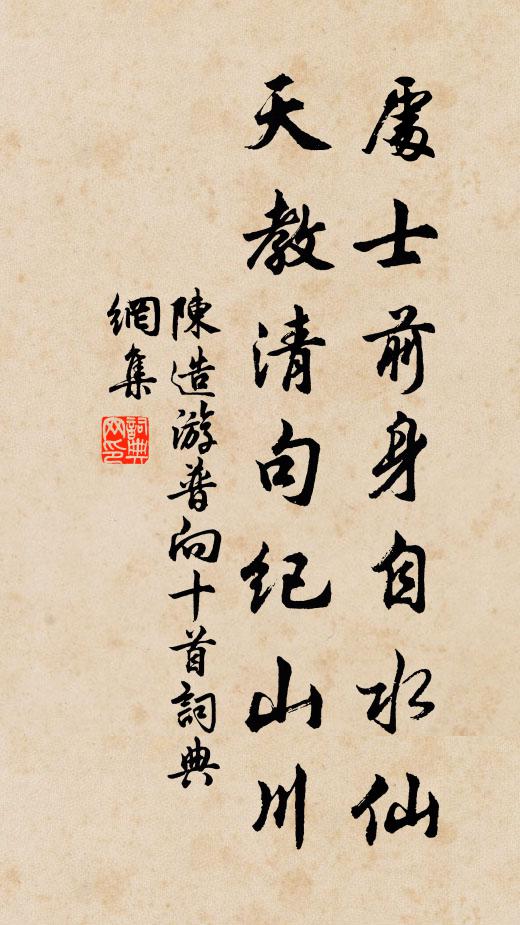 處士前身自水仙
天教清句纪山川
陳造游普向十首詞典
網集
詞典网印